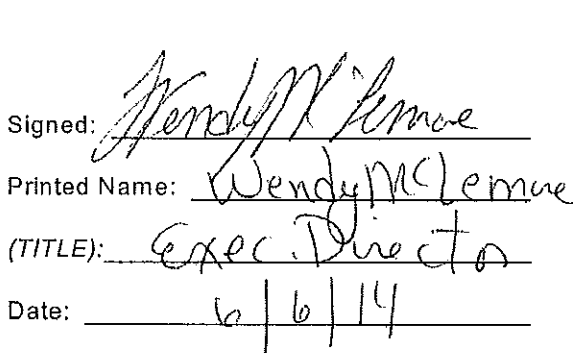 Signed: Wendy McLemore
Printed Name: Wendy McLemore
(TITLE): Exec. Director
Date: 6/6/14